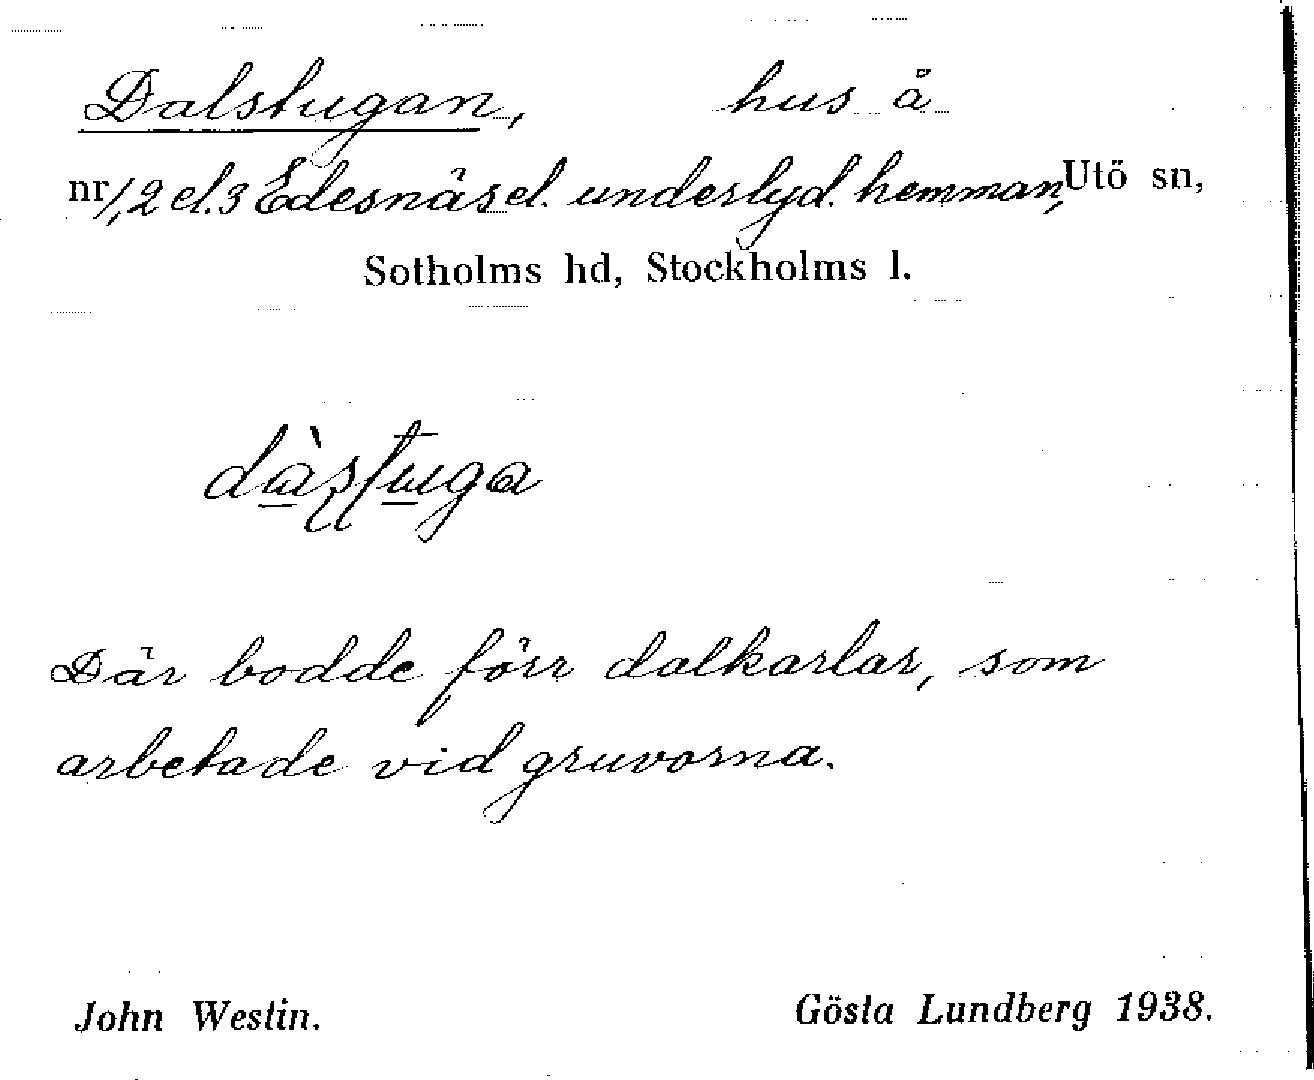 Dalstugan, hus å
nr 1, 2 el. 3 Edesnäs el. underlyd. hemman, Utö sn,
Sotholms hd, Stockholms l.
dàstuga
Där bodde förr dalkarlar, som
arbetade vid gruvorna.
John Westin. Gösta Lundberg 1938.